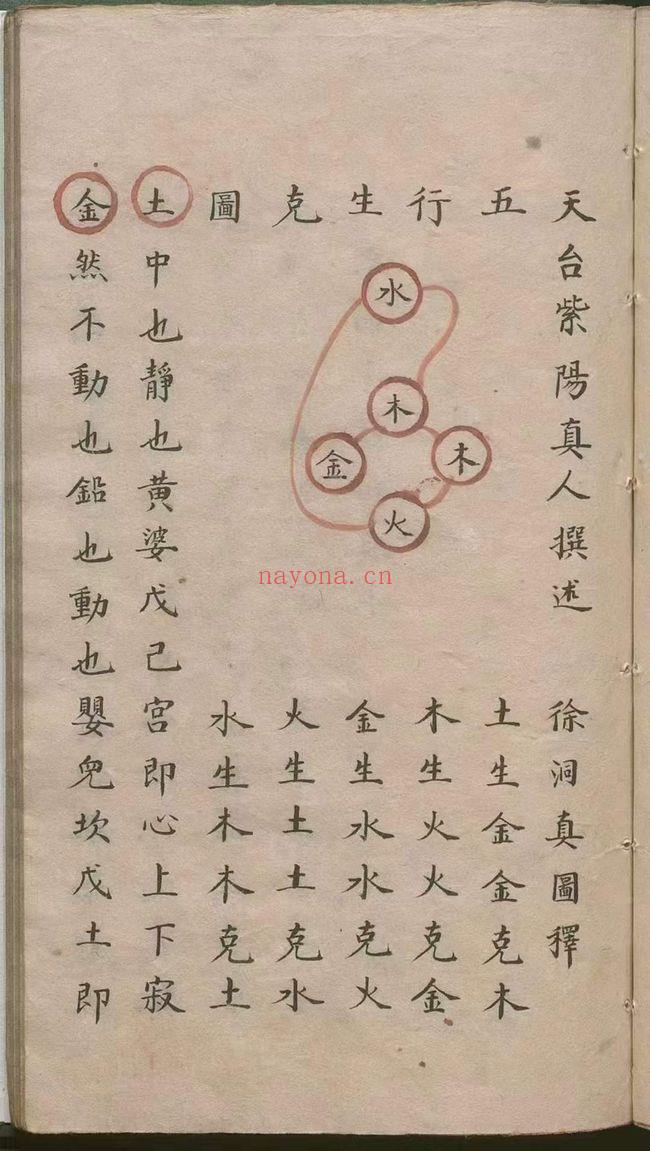 天台紫陽真人撰述 徐洞真圖釋
五行生克圖
水
木
金
木
火
土生金金克木
木生火火克金
金生水水克火
火生土土克水
水生木木克土
土中也靜也黃婆戊己宮即心上下寂
金然不動也鉛也動也嬰兒坎戊土即
nayona.cn